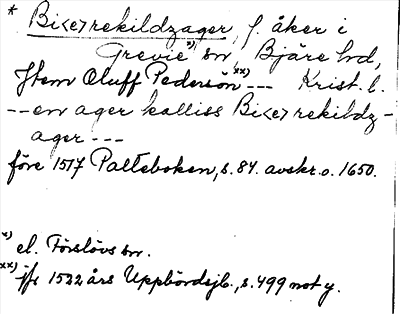 * Bi<e>rekildzager, f. åker i
Grevie *) sn, Bjäre hd,
Jtem Oluff Pedersön **) --- Krist. l.
-- en ager kalliss Bi<e>rekildz-
ager ---
före 1517 Palteboken, s. 84. avskr. o. 1650.
*) el. Förslövs sn.
**) jfr 1522 års Uppbördsjb., s. 499 not y.